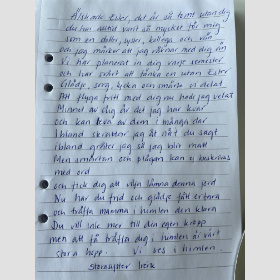 Älskade Ester, det är så tomt utan dig
du har alltid varit så mycket för mig
som en dotter, syster, kollega och vän
och jag märker att jag vaknar med dig än
Vi har planerat in dig varje semester
och har svårt att tänka en utan Ester
Glädje, sorg, lycka och smärta vi delat
Att flytta fritt med dig nu hade jag velat
Minnet av dig är det jag har kvar
och kan leva av dem i många dar
Ibland skrattar jag åt nåt du sagt
ibland gråter jag så jag blir matt
Men smärtan och plågan kan ej beskrivas
med ord
och fick dig att vilja lämna denna jord
Nu har du frid och glädje fått erfara
och träffa mamma i himlen den klara
Du vill inte mer till din egen kropp
men att få träffa dig i himlen är vårt
stora hopp. Vi ses i himlen.